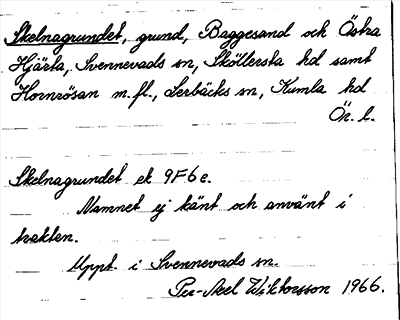 Skelnagrundet, grund, Baggesand och Östra
Hjärta, Svennevads sn, Sköllersta hd samt
Hornrösan m.fl., Lerbäcks sn, Kumla hd
Ör. l.
Skelnagrundet ek 9F6e.
Namnet ej känt och använt i
trakten.
Uppt. i Svennevads sn.
Per-Axel Wiktorsson 1966.